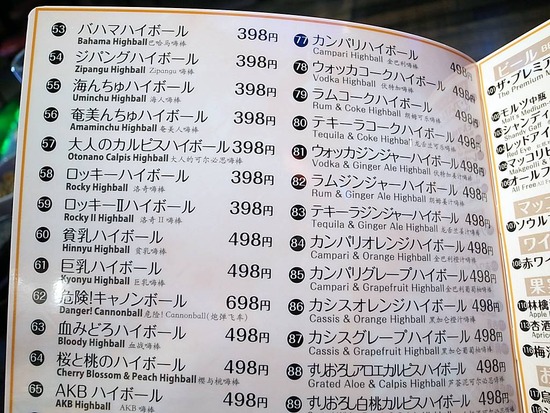 53 バハマハイボール 398円
Bahama Highball 巴哈马嗨棒
54 ジパングハイボール 398円
Zipangu Highball Zipangu 嗨棒
55 海んちゅハイボール 398円
Uminchu Highball 海人嗨棒
56 奄美んちゅハイボール 398円
Amaminchu Highball 奄美人嗨棒
57 大人のカルピスハイボール 398円
Otonano Calpis Highball 大人的可尔必思嗨棒
58 ロッキーハイボール 398円
Rocky Highball 洛奇嗨棒
59 ロッキーIIハイボール 398円
Rocky II Highball 洛奇II嗨棒
60 貧乳ハイボール 498円
Hinnyu Highball 貧乳嗨棒
61 巨乳ハイボール 498円
Kyonyu Highball 巨乳嗨棒
62 危険!キャノンボール 698円
Danger! Cannonball 危险! Cannonball(炮弹飞车)
63 血みどろハイボール 498円
Bloody Highball 血战嗨棒
64 桜と桃のハイボール 498円
Cherry Blossom & Peach Highball 樱与桃嗨棒
65 AKB ハイボール 498円
AKB Highball AKB 嗨棒
77 カンパリハイボール 498円
Campari Highball 金巴利嗨棒
78 ウォッカコークハイボール 498円
Vodka Highball 伏特加嗨棒
79 ラムコークハイボール 498円
Rum & Coke Highball 朗姆可乐嗨棒
80 テキーラコークハイボール 498円
Tequila & Coke Highball 龙舌兰可乐嗨棒
81 ウォッカジンジャーハイボール 498円
Vodka & Ginger Ale Highball
82 ラムジンジャーハイボール 498円
Rum & Ginger Ale Highball 朗姆姜汁嗨棒
83 テキーラジンジャーハイボール 498円
Tequila & Ginger Ale Highball 龙舌兰姜汁嗨棒
84 カンパリオレンジハイボール 498円
Campari & Orange Highball 金巴利橙汁嗨棒
85 カンパリグレープハイボール 498円
Campari & Grapefruit Highball
86 カシスオレンジハイボール 498円
Cassis & Orange Highball 黑加仑橙汁嗨棒
87 カシスグレープハイボール 498円
Cassis & Grapefruit Highball 黑加仑葡萄柚嗨棒
88 すりおろしアロエカルピスハイボール 498円
Grated Aloe & Calpis Highball 芦荟可尔必思嗨棒
89 すりおろし白桃カルピスハイボール 498円
ビール
ザ・プレミア
The Premium
モルツ中瓶
Malt's Medium
シャンディ
Shandy Gaff
レッドアイ
Red Eye
マッコリビ
Makgeolli &
オールフ
All Free
マッコ
ソウル
ワイ
赤ワイ
果実
林檎
杏酒
Apricot
梅酒